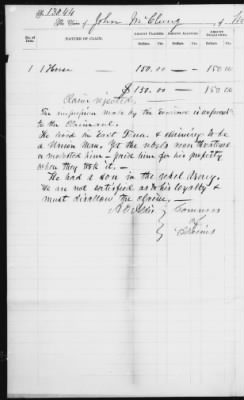 No. 13044
The Claim of John McClung, of
No. of Item.
NATURE OF CLAIM.
AMOUNT CLAIMED.
AMOUNT ALLOWED.
AMOUNT DISALLOWED.
Dolls. Cents. Dolls. Cents. Dolls. Cents.
1 1 Horse 150.00 — 150.00
$150.00 — 150.00
Claim rejected.
The impression made by the evidence is against
the Claimant.
He lived in East Tenn. & claiming to be
a Union Man. Yet the rebels never threatened
or molested him — paid him for his property
when they took it. —
He had a son in the rebel Army.
We are not satisfied as to his loyalty &
must disallow the claim. —
A. O. Aldis
Commrs
of
Claims